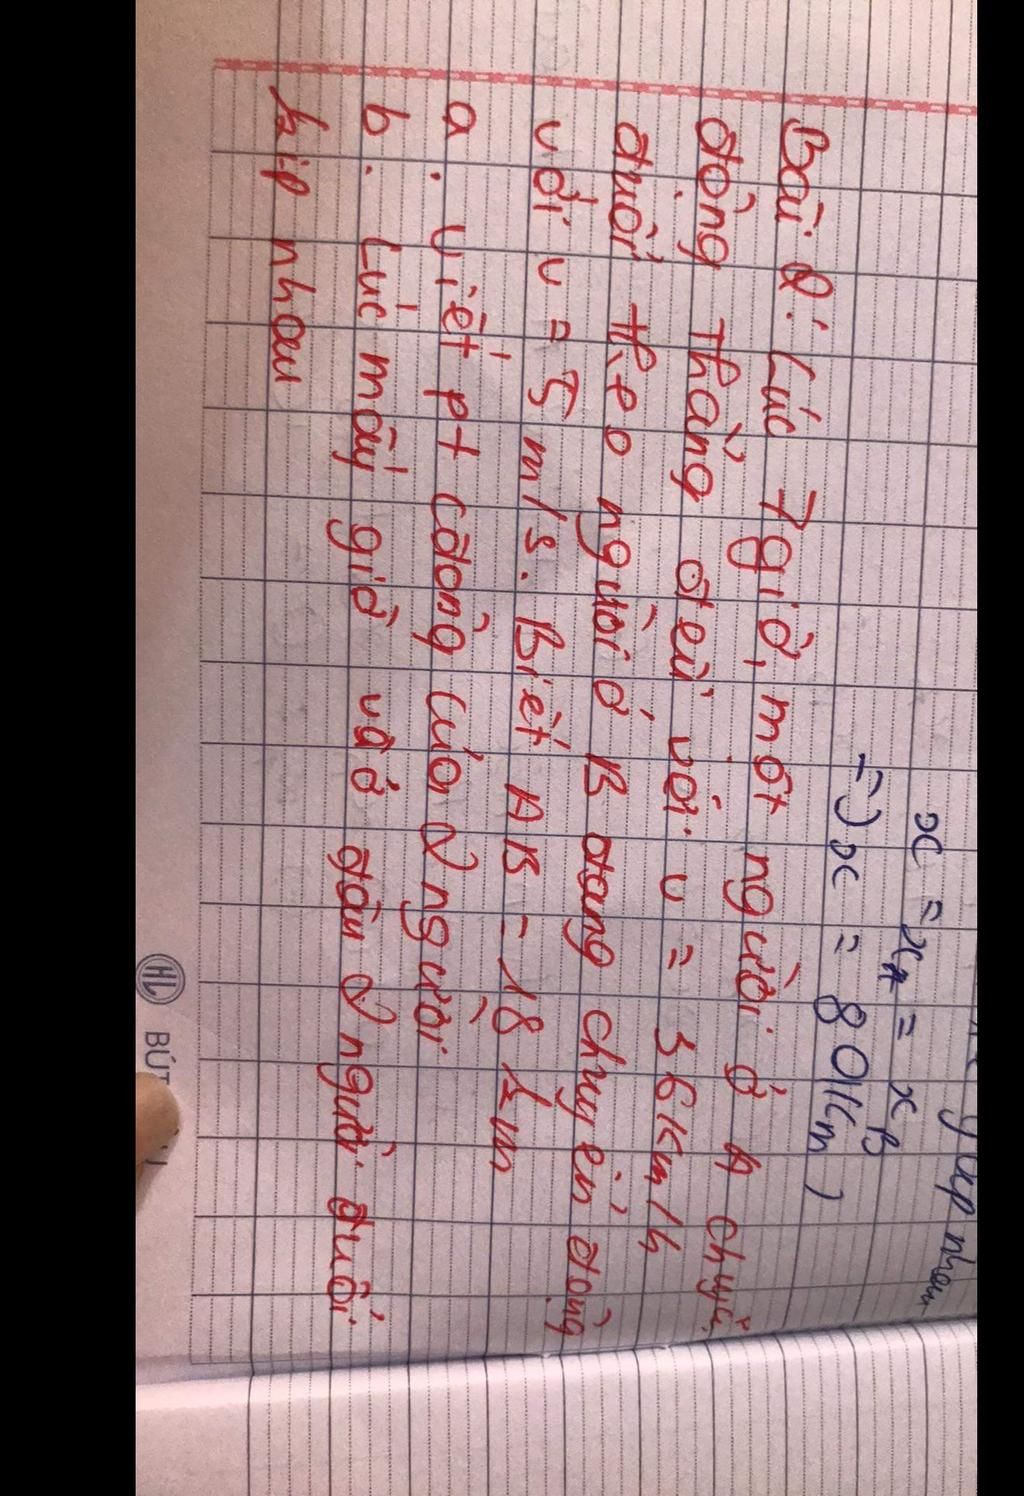 gặp nhau
x = xA = xB
=> x = 80 (km)
Bài 2: Lúc 7 giờ, một người ở A chuyển
động thẳng đều với v = 36km/h
đuổi theo người ở B đang chuyển động
với v = 5 m/s. Biết AB = 18 km
a. viết pt cđộng của 2 người
b. Lúc mấy giờ và ở đâu 2 người đuổi
kịp nhau
HL BÚT